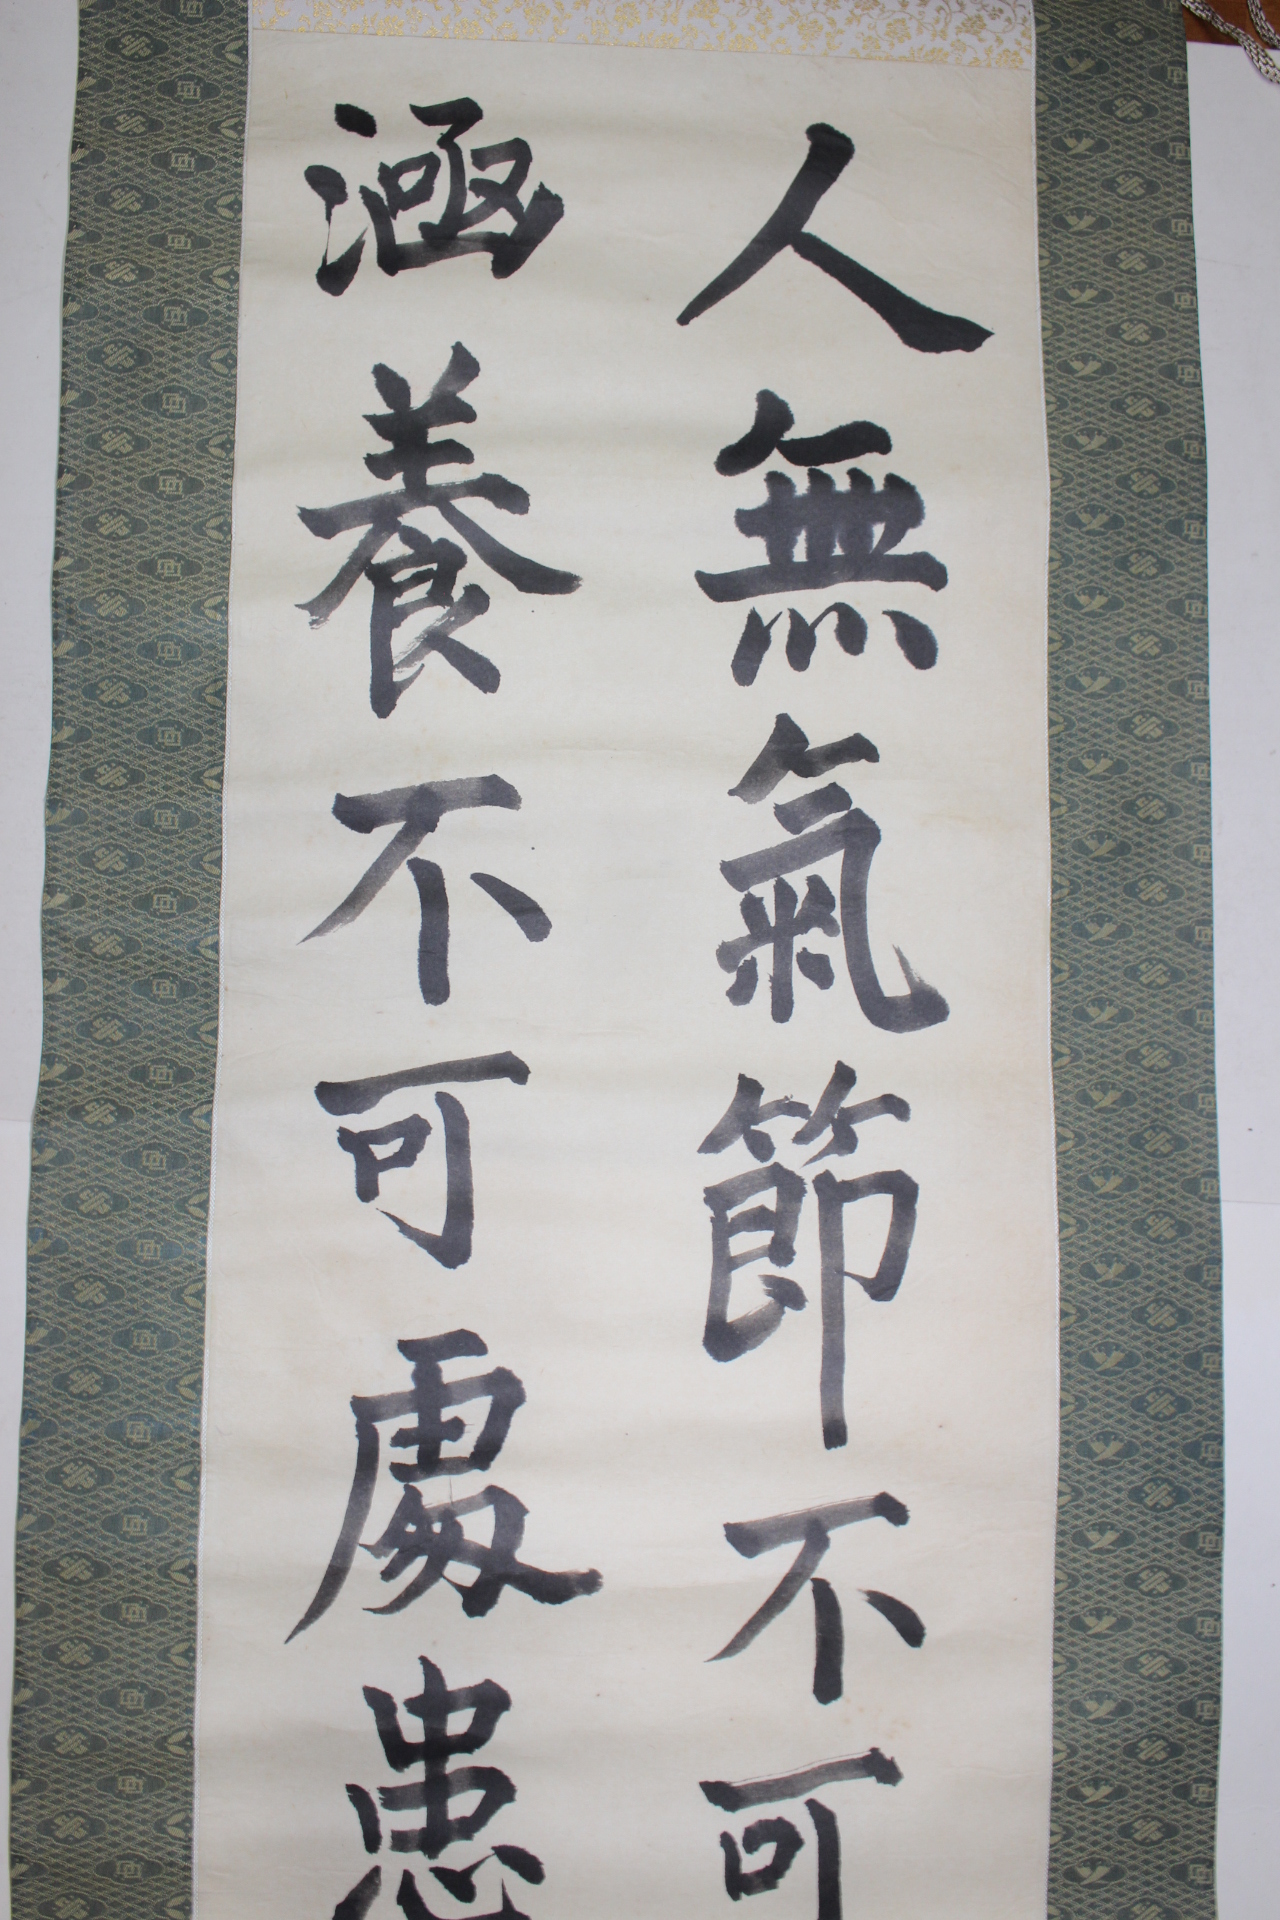 人無氣節不可
涵養不可處患